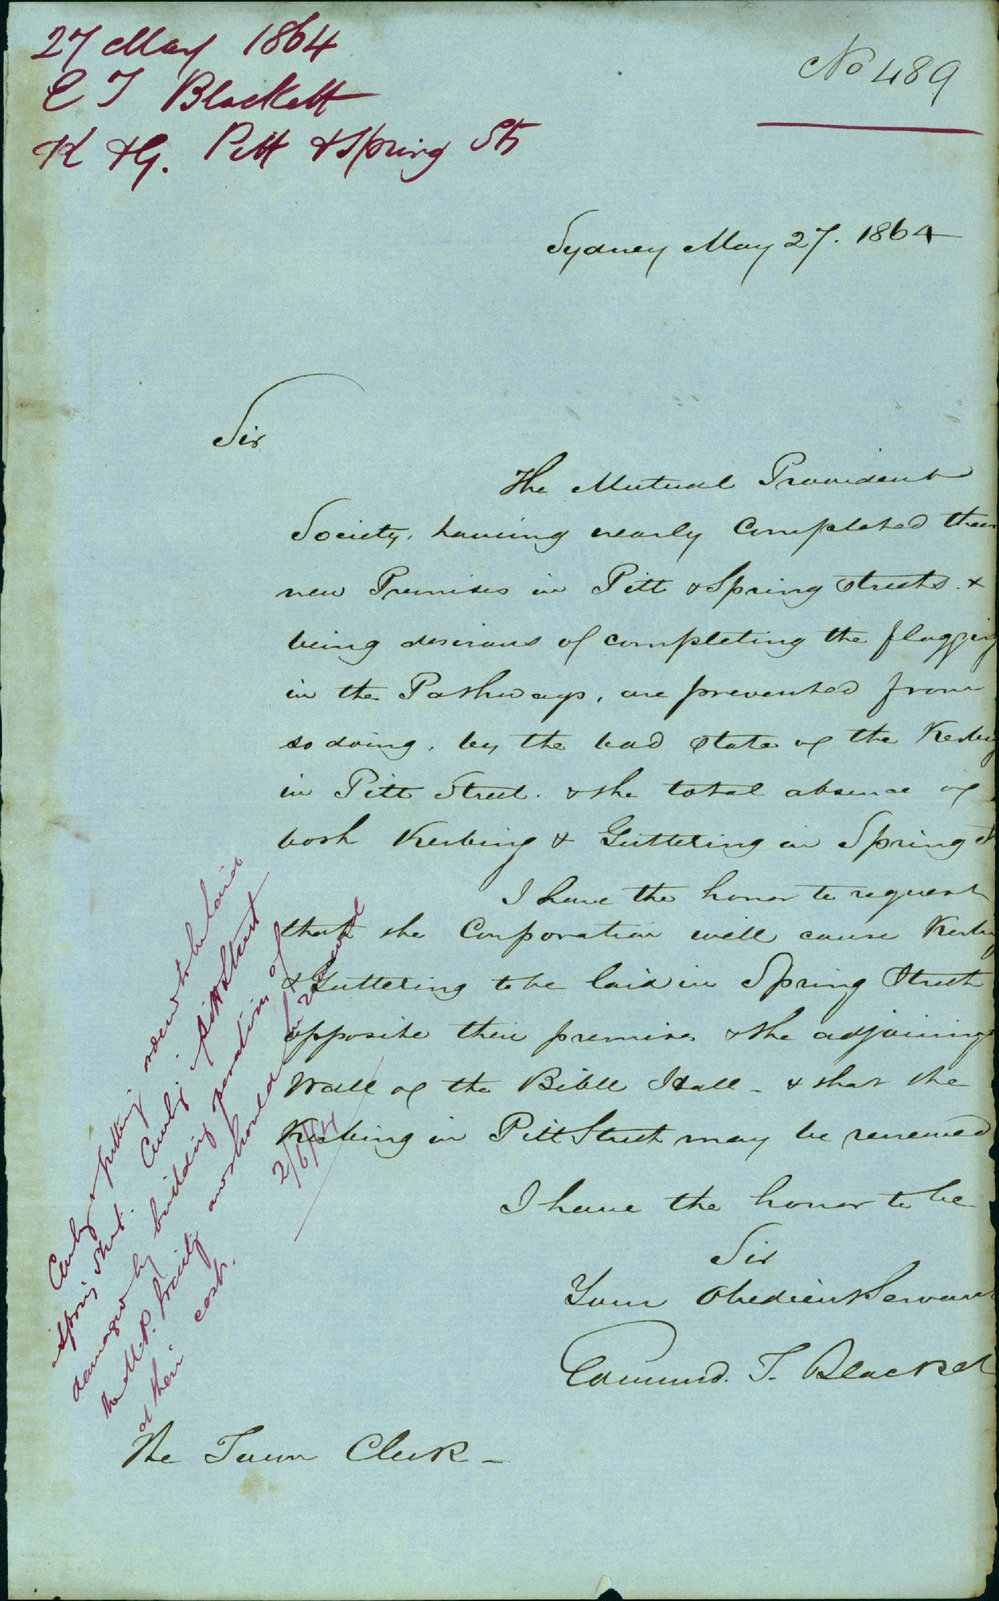 27 May 1864
E T Blackett
K & G. Pitt & Spring Sts
No 489
Sydney May 27. 1864
Sir
The Mutual Provident
Society, having nearly Completed their
new Premises in Pitt & Spring Streets. &
being desirous of completing the flagging
in the Pathways, are prevented from
so doing, by the bad state of the Kerbing
in Pitt Street. & the total absence of
both Kerbing & Guttering in Spring St
I have the honor to request
that the Corporation will cause Kerbing
& Guttering to be laid in Spring Street
opposite their premises & the adjoining
Wall of the Bible Hall - & that the
Kerbing in Pitt Street may be renewed
I have the honor to be
Sir
Your Obedient Servant
Edmund. T. Blacket
The Town Clerk -
Curbing & guttering to be laid
Spring Street. Curbing Pitt Street
damaged by building operations of
the M.P. Society and should be renewed
at their cost.
2/6/64